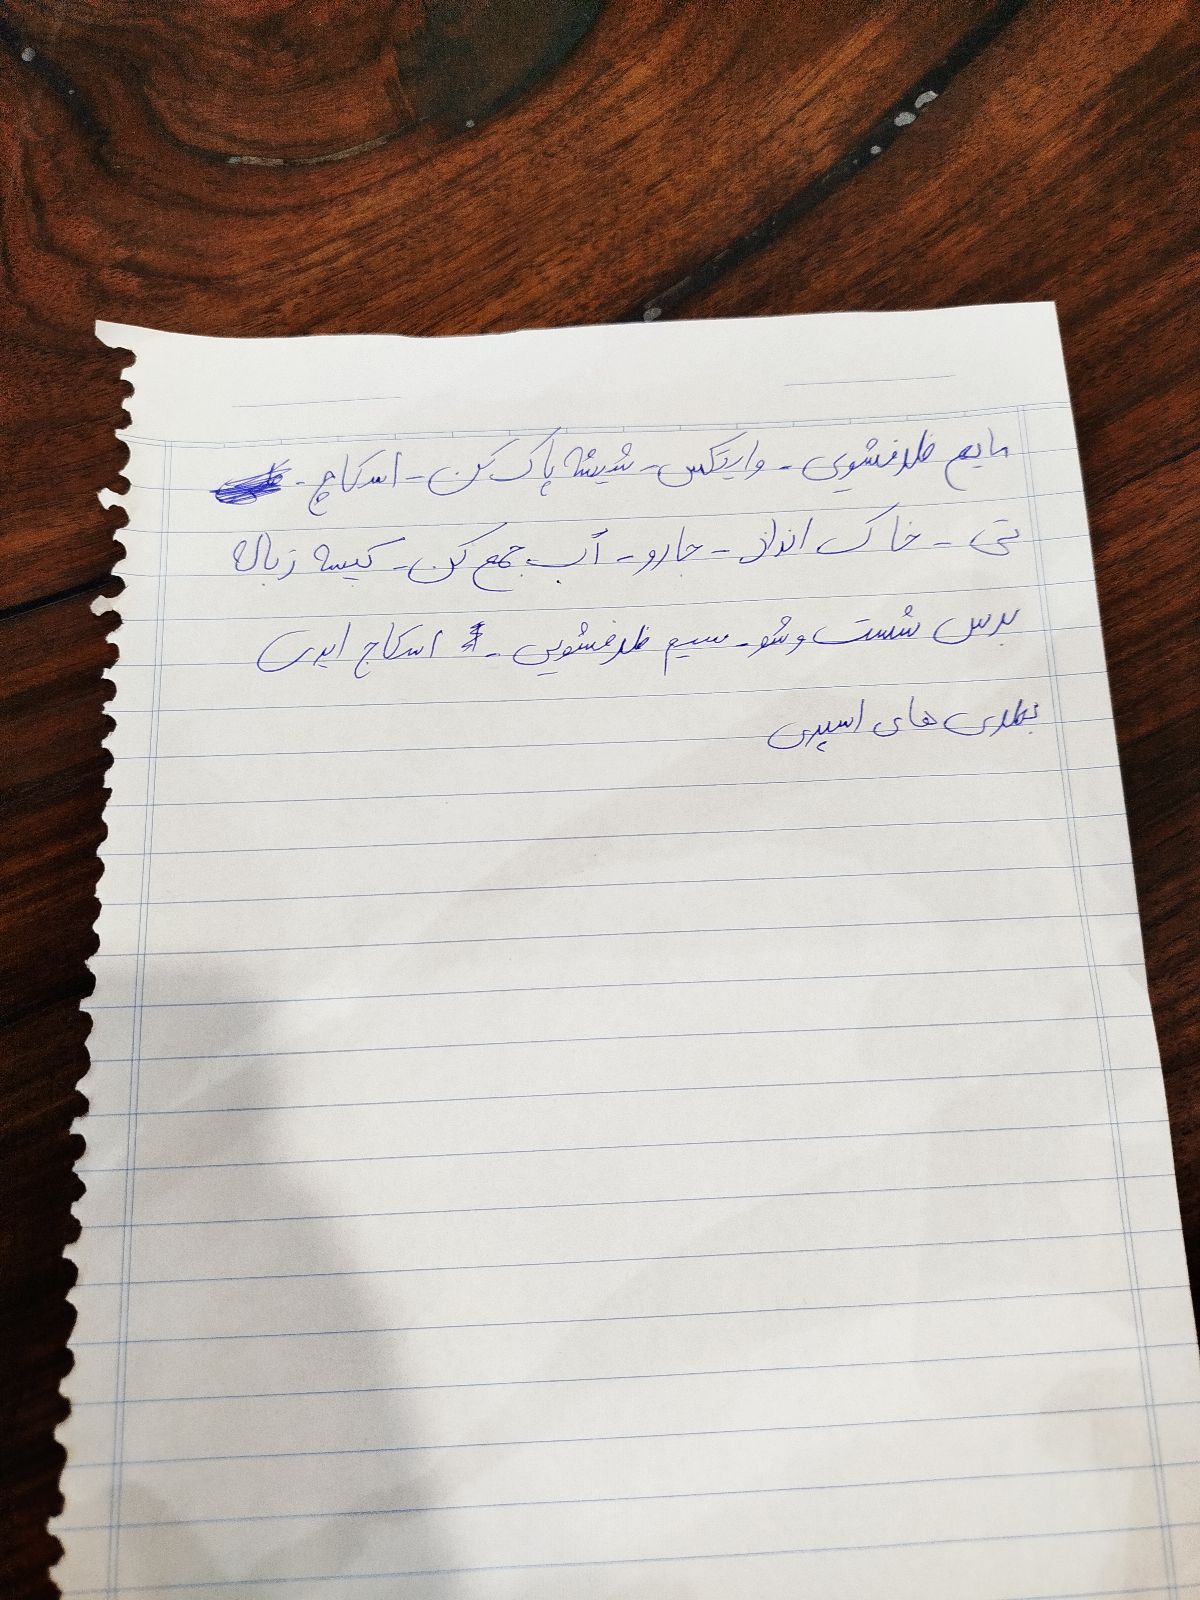 مایع ظرفشویی - وایتکس - شیشه پاک کن - اسکاچ -
تی - خاک انداز - جارو - آب جمع کن - کیسه زباله
برس شست و شو - سیم ظرفشویی - اسکاج ابری
بطری های اسپری